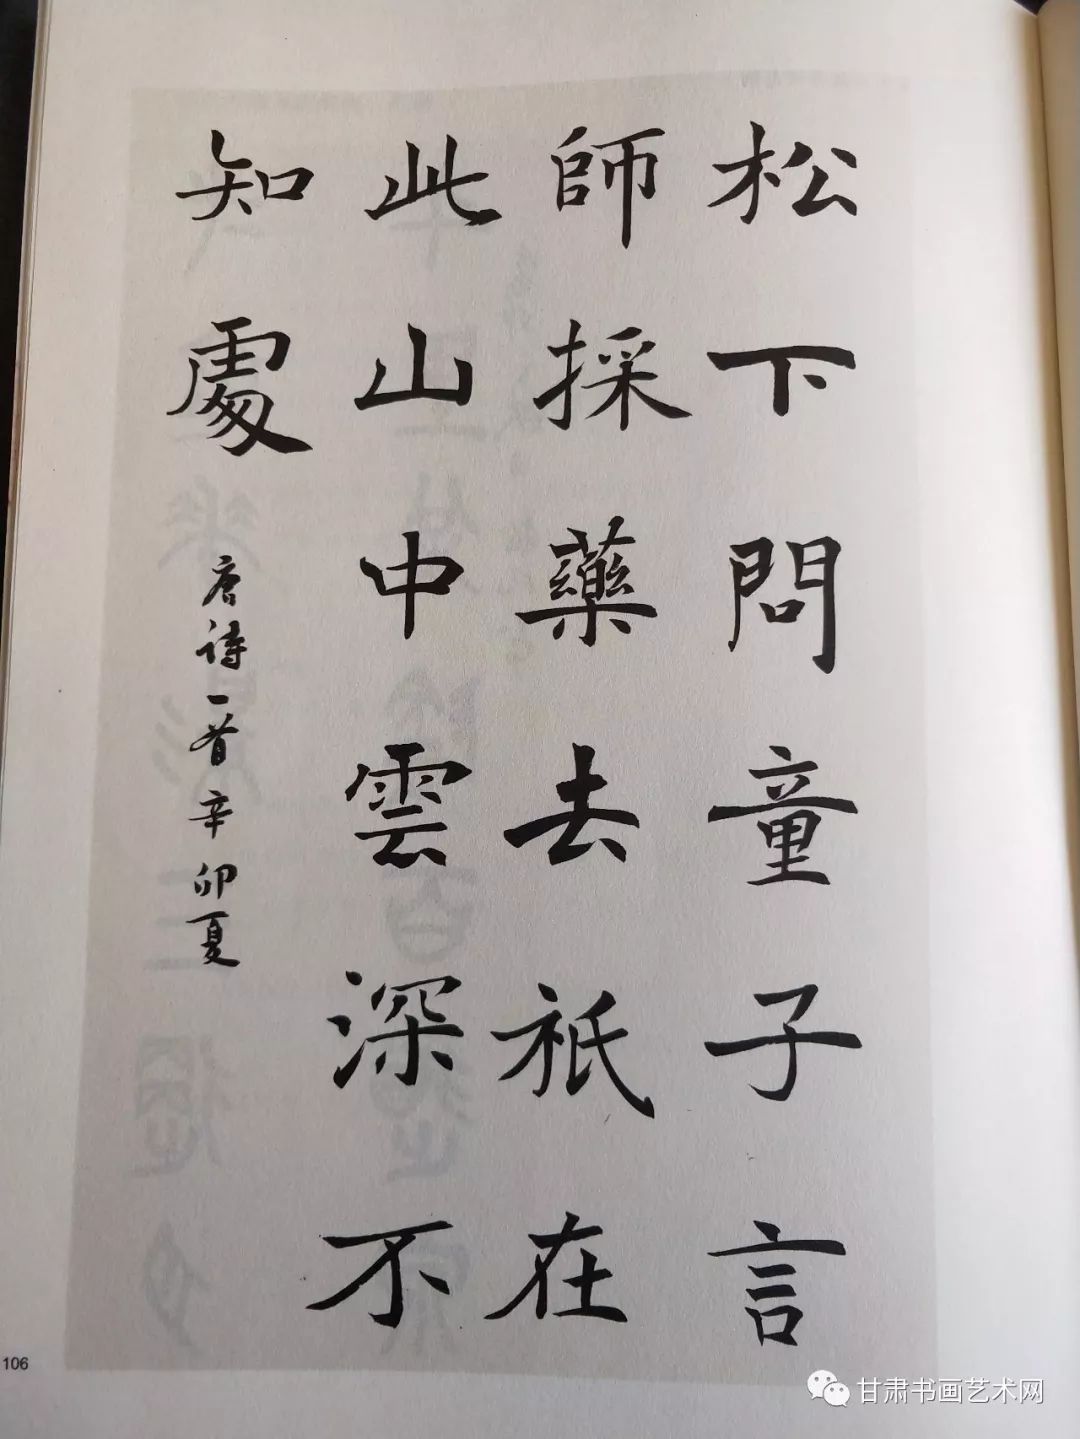 松下問童子言
師採藥去祇在
此山中雲深不
知處
唐诗一首辛卯夏
106
甘肃书画艺术网